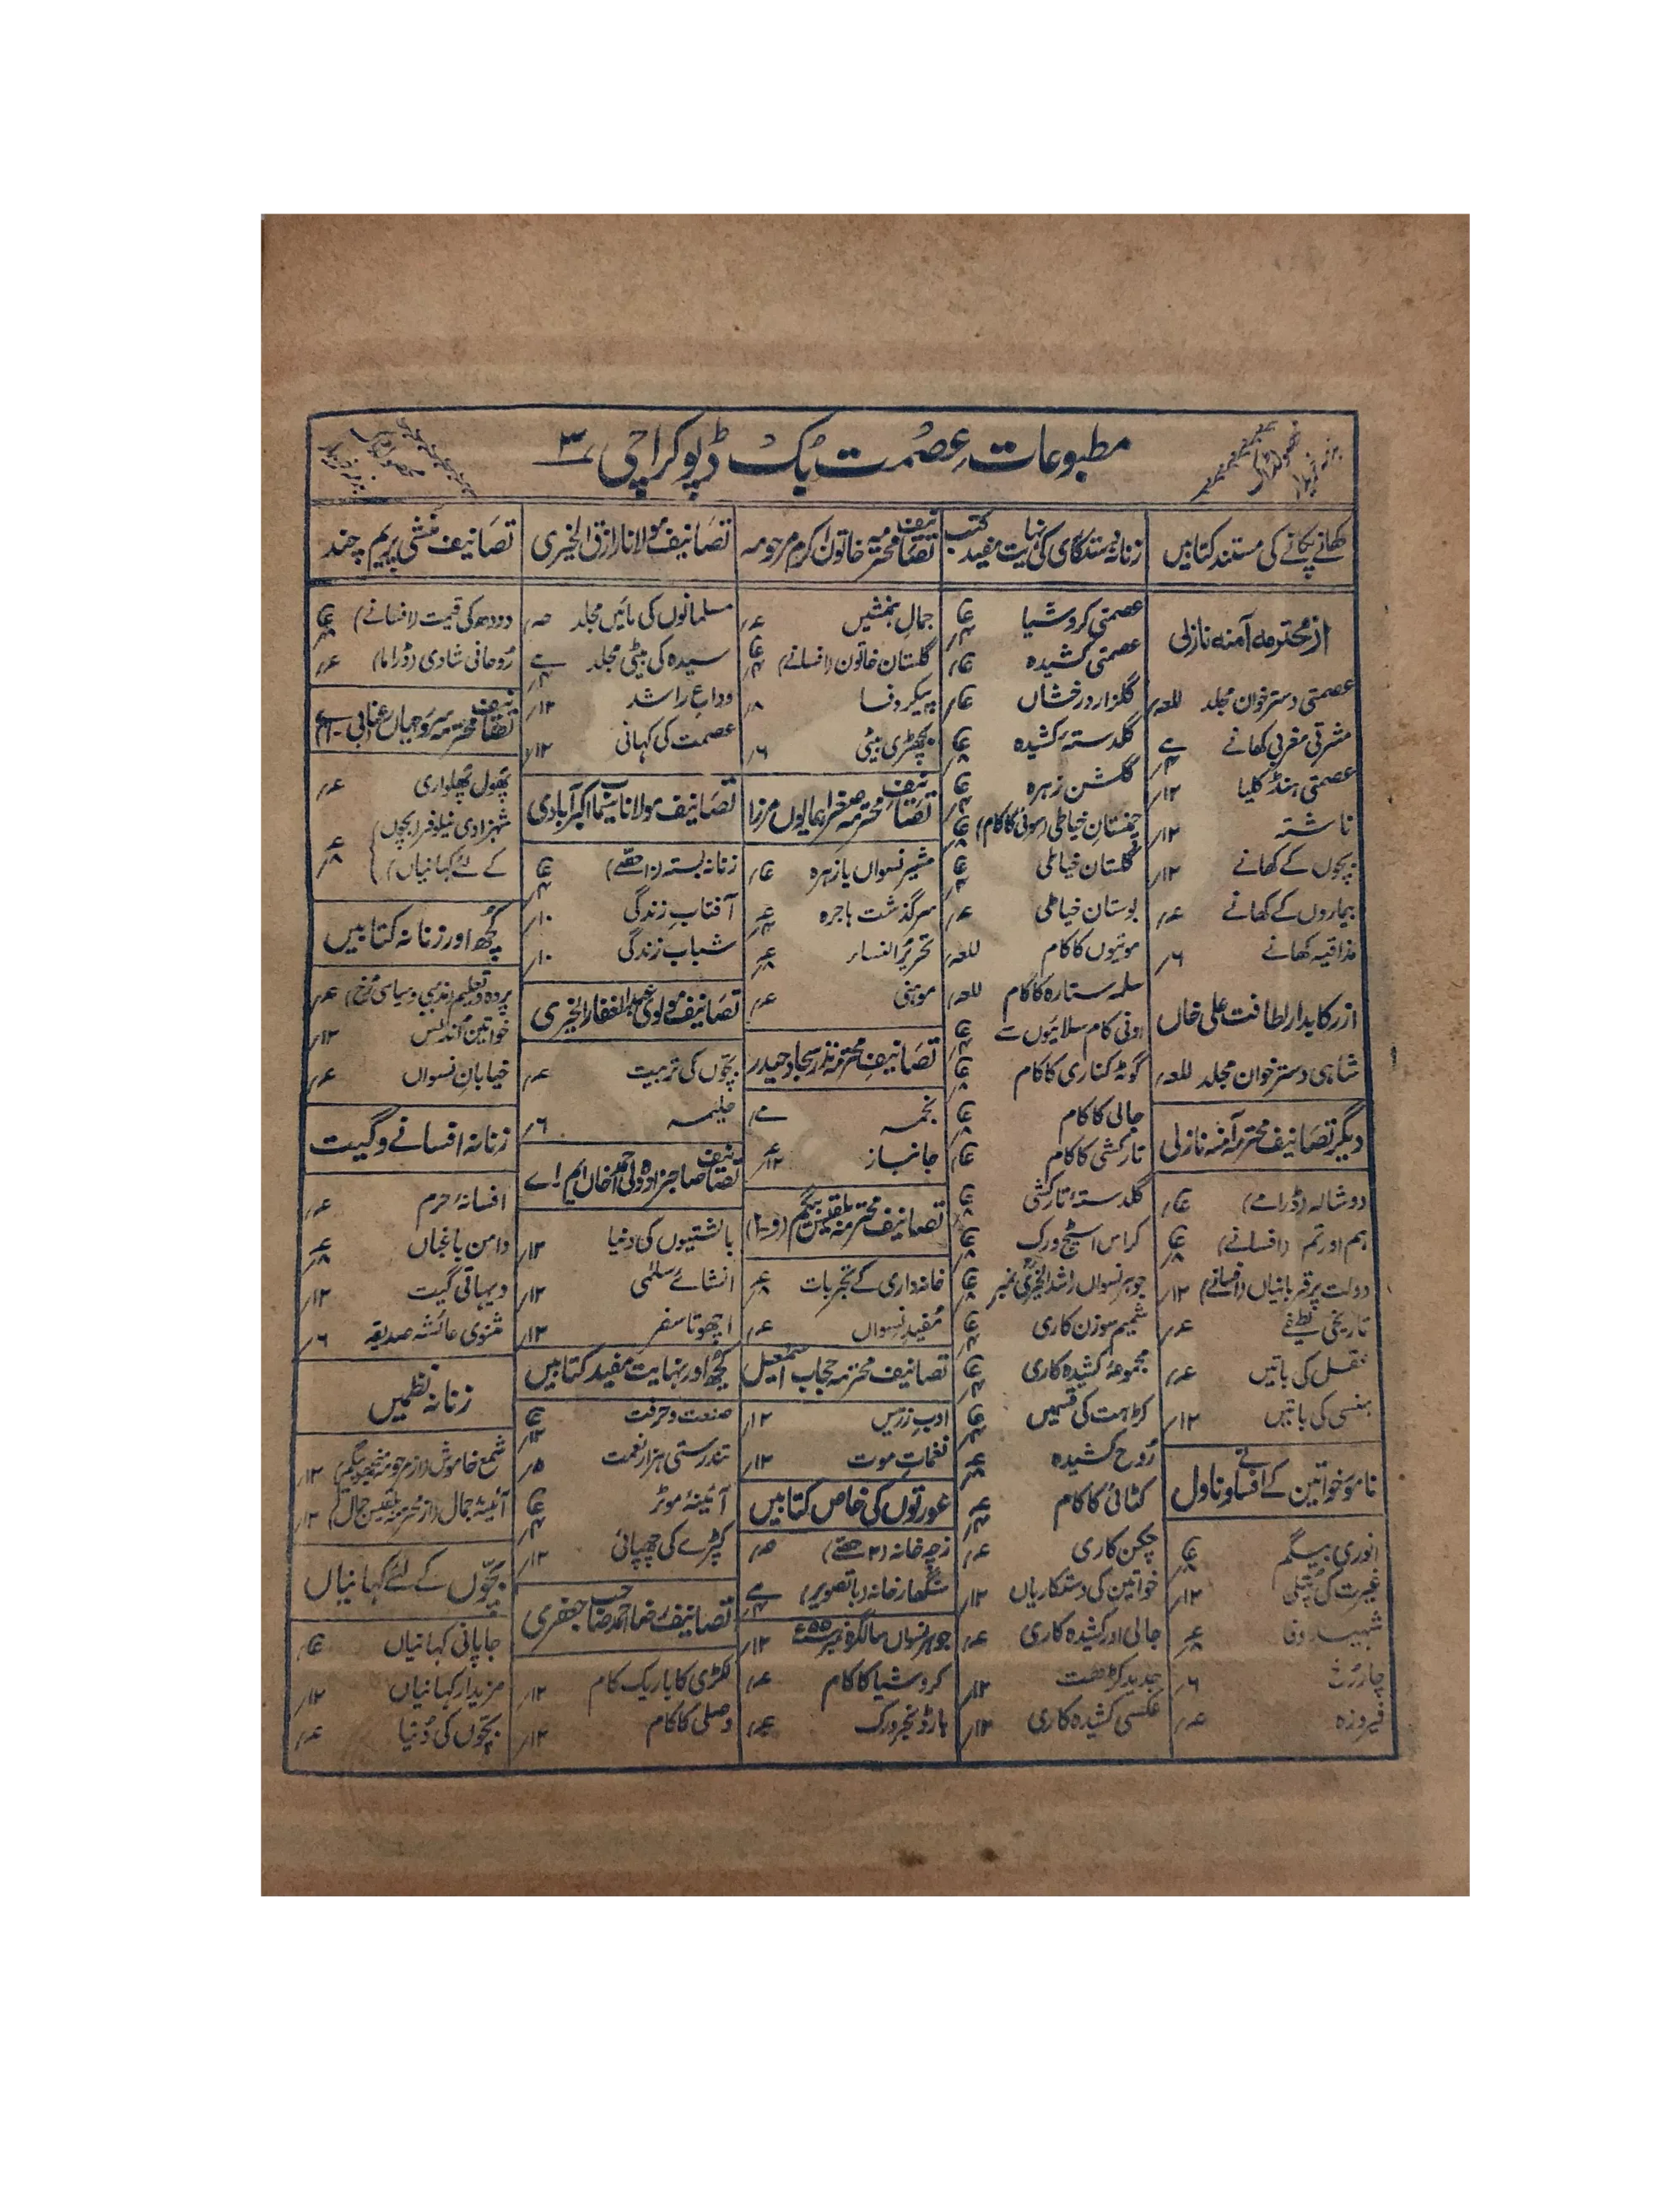 مطبوعاتِ عصمت بک ڈپو کراچی ۳
کھانے پکانے کی مستند کتابیں
از محترمہ آمنہ نازلی
عصمتی دسترخوان مجلد للعہ
مشرقی مغربی کھانے
عصمتی ہنڈکلیا ۱۲/
ناشتہ ۱۲/
بچوں کے کھانے ۱۲/
بیماروں کے کھانے عہ/
مذاقیہ کھانے ۶/
از رکابدار لطافت علی خاں
شاہی دسترخوان مجلد للعہ
دیگر تصانیف محترمہ آمنہ نازلی
دوشالہ (ڈرامے)
ہم اور تم (افسانے)
دولت پر قربانیاں (افسانے) ۱۲/
تاریخی لطیفے عہ/
عقل کی باتیں عہ/
ہنسی کی باتیں ۱۲/
نامور خواتین کے افسانے و ناول
انوری بیگم
غیرت کی پتلی ۱۲/
شہید وفا
چار رُخ ۶/
فیروزہ عہ/
زنانہ دستکاری کی نہایت مفید کتب
عصمتی کروشیا
عصمتی کشیدہ
گلزار درخشاں
گلدستۂ کشیدہ
گلشن زہرہ
چمنستانِ خیاطی (سوئی کا کام)
گلستان خیاطی
بوستان خیاطی عہ/
موتیوں کا کام للعہ
سلمہ ستارہ کا کام للعہ
اونی کام سلائیوں سے
گوٹہ کناری کا کام
جالی کا کام
تارکشی کا کام
گلدستۂ تارکشی
کراس اسٹیچ ورک
جوہر نسواں راشد الخیری نمبر
شمیم سوزن کاری
مجموعۂ کشیدہ کاری
کڑاہت کی قسمیں
رُوحِ کشیدہ
کٹائی کا کام
چکن کاری عہ/
خواتین کی دستکاریاں ۱۲/
جالی اور کشیدہ کاری عہ/
جدید کڑھت ۱۲/
عکسی کشیدہ کاری ۱۲/
تصانیف محترمہ خاتون اکرم مرحومہ
جمالِ ہمنشیں عہ/
گلستان خاتون (افسانے)
پیکرِ وفا ۸/
بچھڑی بیٹی ۶/
تصانیف محترمہ صغرا ہمایوں مرزا
مشیر نسواں یا زہرہ
سرگذشت ہاجرہ
تحریر النساء
موہنی عہ/
تصانیف محترمہ نذر سجاد حیدر
نجمہ
جانباز
تصانیف محترمہ بلقیس بیگم
خانہ داری کے تجربات
مُفیدِ نسواں عہ/
تصانیف محترمہ حجاب اسمٰعیل
ادبِ زریں ۱۲/
نغماتِ موت ۱۲/
عورتوں کی خاص کتابیں
زچہ خانہ (۲ حصّے)
سنگھار خانہ (باتصویر)
جوہر نسواں سالگرہ نمبر ۱۲/
کروشیا کا کام عہ/
ہارڈنجر ورک
تصانیف مولانا رازق الخیری
مسلمانوں کی مائیں مجلد
سیدہ کی بیٹی مجلد
وداعِ راشد ۱۲/
عصمت کی کہانی ۱۲/
تصانیف مولانا سیماب اکبرآبادی
زنانہ بستہ
آفتابِ زندگی ۱۰/
شبابِ زندگی ۱۰/
تصانیف مولوی عبدالغفار الخیری
بچّوں کی تربیت عہ/
حلیمہ ۶/
تصانیف صاحبزادہ ولی احمد خاں ایم اے
بالشتیوں کی دنیا ۱۲/
انشائے سلمٰی ۱۲/
اچھوتا سفر ۱۲/
کچھ اور نہایت مفید کتابیں
صنعت و حرفت
تندرستی ہزار نعمت ۵/
آئینۂ موٹر
کپڑے کی چھپائی ۱۲/
تصانیف ضیا احمد صاحب جعفری
لکڑی کا باریک کام ۱۲/
وصلی کا کام ۱۲/
تصانیف منشی پریم چند
دودھ کی قیمت (افسانے)
رُوحانی شادی (ڈراما) عہ/
پھول پھلواری عہ/
شہزادی نیلوفر (بچوں
کے لئے کہانیاں)
کچھ اور زنانہ کتابیں
پردہ و تعلیم (مذہبی و سیاسی رُخ) عہ/
خواتینِ اندلس ۱۲/
خیابانِ نسواں عہ/
زنانہ افسانے و گیت
افسانۂ حرم عہ/
دامنِ باغباں
دیہاتی گیت ۱۲/
مثنوی عائشہ صدیقہ ۶/
زنانہ نظمیں
شمع خاموش ۱۲/
آئینہ جمال (از محترمہ بلقیس جمال) ۱۲/
بچّوں کے لئے کہانیاں
جاپانی کہانیاں
مزیدار کہانیاں ۱۲/
بچّوں کی دُنیا عہ/